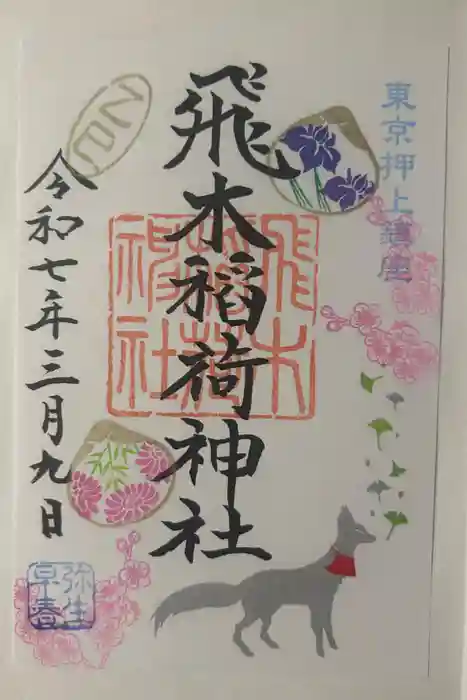 東京押上鎮座
飛木稲荷神社
飛木
稲荷
神社
令和七年三月九日
弥生
早春